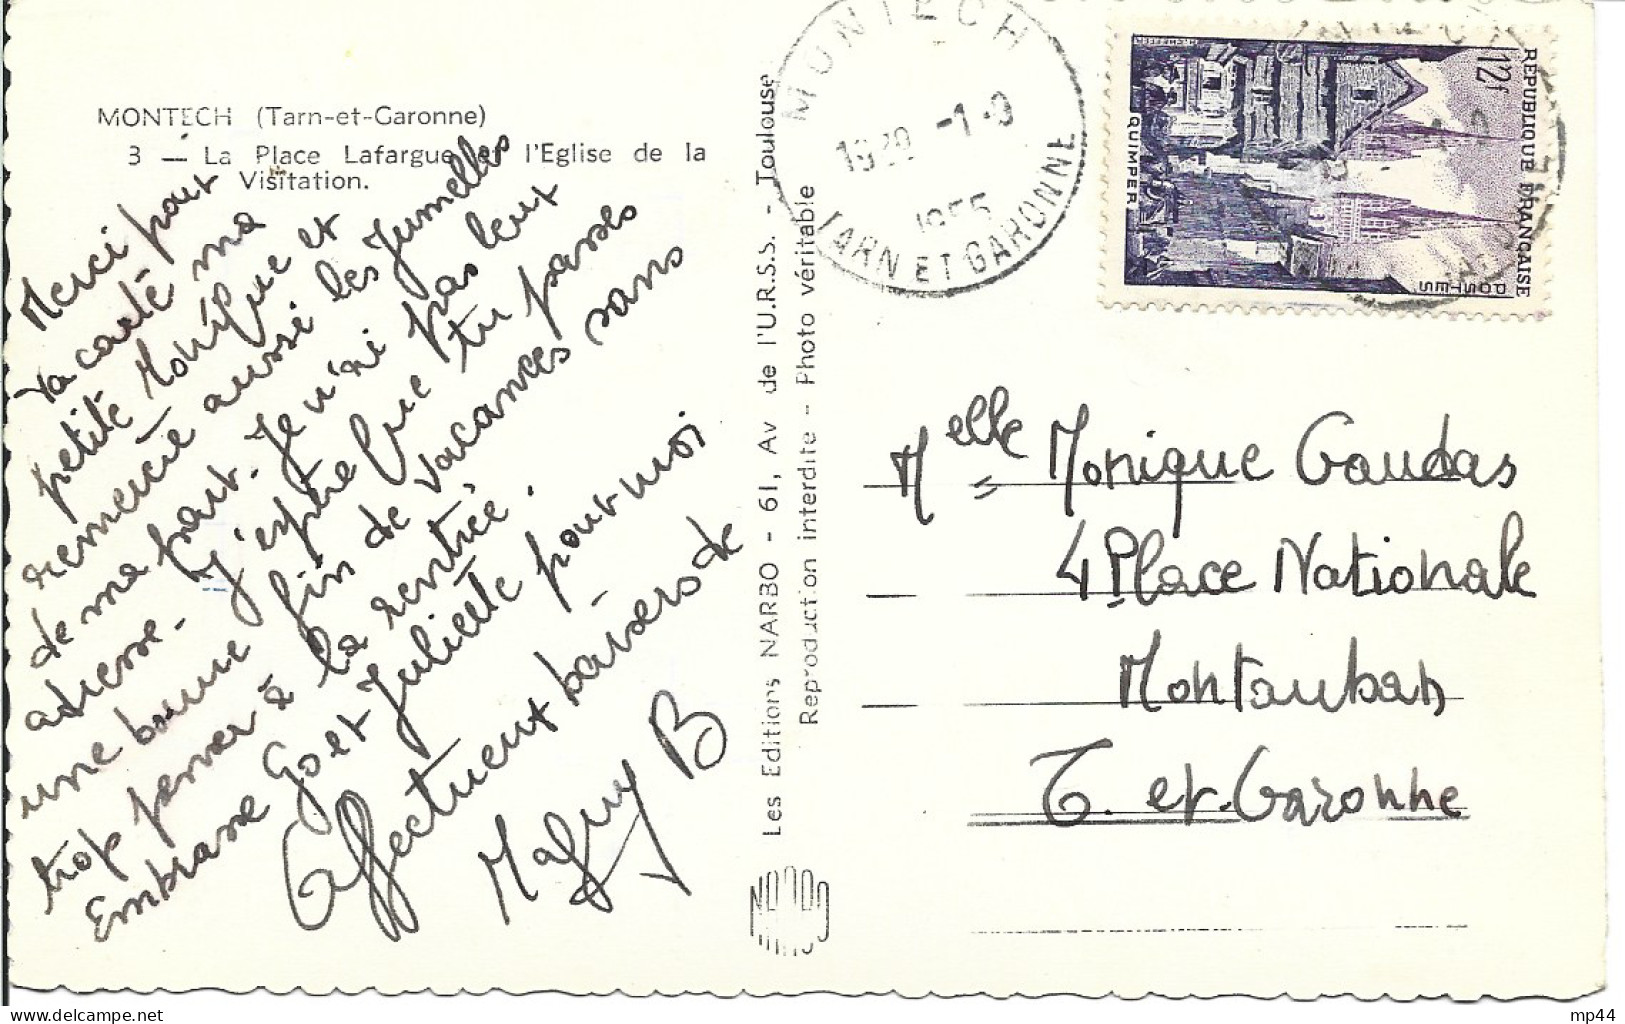 MONTECH (Tarn-et-Garonne)
3 — La Place Lafargue et l'Eglise de la
Visitation.
Merci pour
ta carte ma
petite Monique et
remercie aussi les Jumelles
de ma part. Je n'ai pas leur
adresse. J'espère que tu passes
une bonne fin de vacances sans
trop penser à la rentrée.
Embrasse Go et Juliette pour moi
Affectueux baisers de
Maguy B
Les Editions NARBO - 61, Av de l'U.R.S.S. - Toulouse
Reproduction interdite - Photo véritable
MONTECH
1930 -1 -9
1955
TARN ET GARONNE
12f
REPUBLIQUE FRANÇAISE
POSTES
QUIMPER
Melle Monique Gaudas
4 Place Nationale
Montauban
T. et. Garonne
mp44